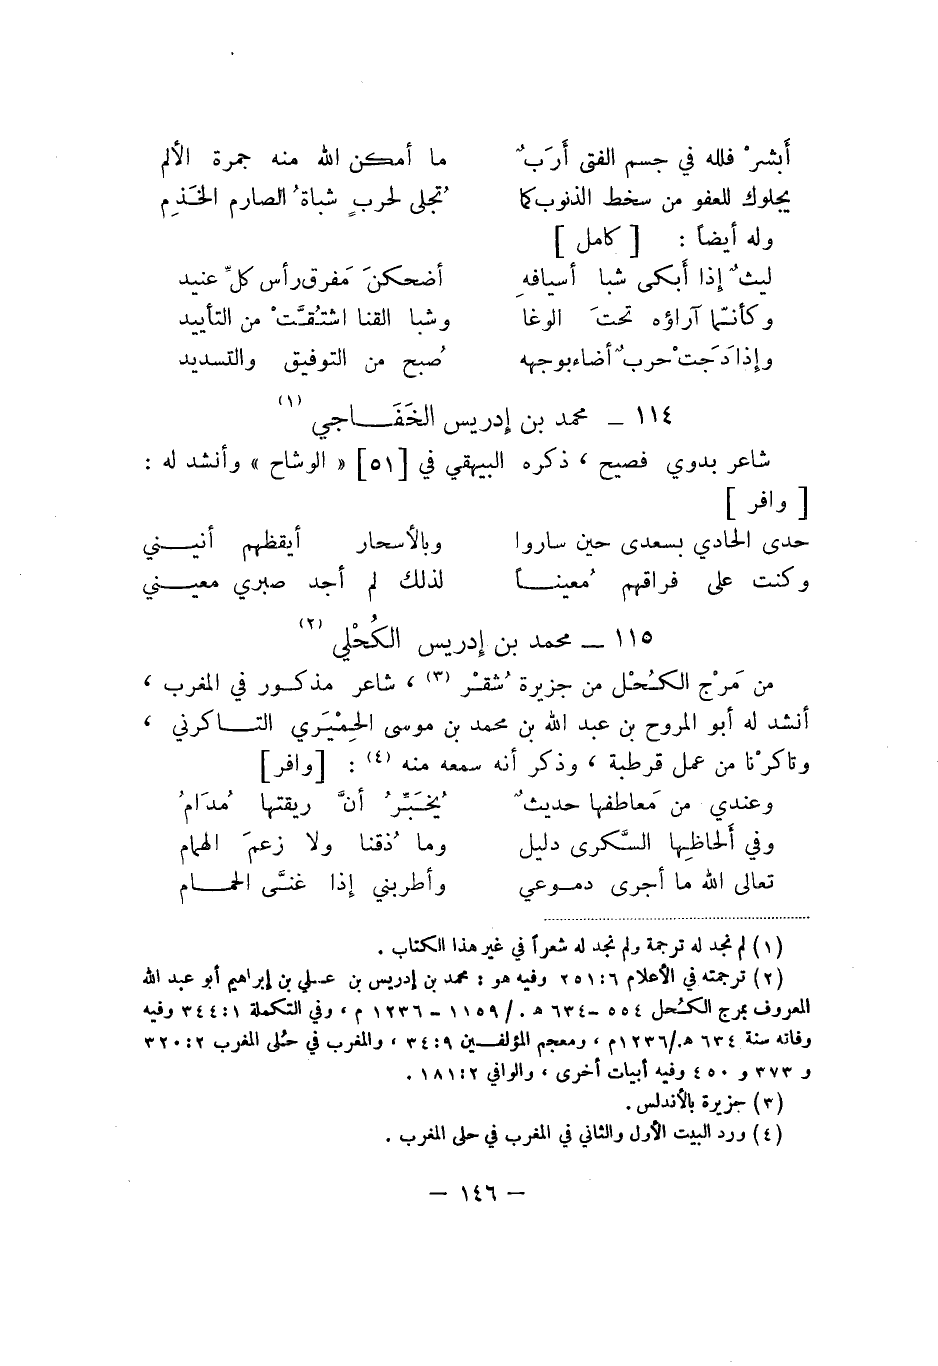 أَبشرْ فلله في جسم الفتى أَرَبٌ ما أمكن الله منه جمرة الألم
يجلوك للعفو من سخط الذنوب كما تُجلى لحربٍ شباةُ الصارم الخَذِمِ
وله أيضاً : [ كامل ]
ليثٌ إذا أَبكى شبا أسيافهِ أضحكنَ مَفرق رأس كلِّ عنيد
وكأنّما آراؤه تحتَ الوغا وشبا القنا اشتُقَّتْ من التأييد
وإذا دَجَتْ حربٌ أضاء بوجهه صُبح من التوفيق والتسديد
١١٤ ــ محمد بن إدريس الخَفَاجي (١)
شاعر بدوي فصيح ، ذكره البيهقي في [٥١] « الوشاح » وأنشد له :
[ وافر ]
حدى الحادي بسعدى حين ساروا وبالأسحار أيقظهم أنيني
وكنت على فراقهم مُعيناً لذلك لم أجد صبري معيني
١١٥ ــ محمد بن إدريس الكُحْلي (٢)
من مَرْج الكُحْل من جزيرة شُقْر (٣) ، شاعر مذكور في المغرب ،
أنشد له أبو المروح بن عبد الله بن محمد بن موسى الحِمْيَري التاكرني ،
وتاكرْنا من عمل قرطبة ، وذكر أنه سمعه منه (٤) : [وافر]
وعندي من مَعاطفها حديثٌ يُخَبِّرُ أنَّ ريقتها مُدَامُ
وفي أَلحاظِها السَّكرى دليل وما ذُقنا ولا زعمَ الهمام
تعالى الله ما أجرى دموعي وأطربني إذا غنَّى الحمام
(١) لم نجد له ترجمة ولم نجد له شعراً في غير هذا الكتاب .
(٢) ترجمته في الأعلام ٦:٢٥١ وفيه هو : محمد بن إدريس بن علي بن إبراهيم أبو عبد الله
المعروف بمرج الكُحل ٥٥٤ -٦٣٤ ه./ ١١٥٩ - ١٢٣٦ م ، وفي التكملة ١:٣٤٤ وفيه
وفاته سنة ٦٣٤ ه./١٢٣٦م ، ومعجم المؤلفين ٩:٣٤ ، والمغرب في حُلى المغرب ٢:٣٢٠
و ٣٧٣ و ٤٥٠ وفيه أبيات أخرى ، والوافي ٢:١٨١ .
(٣) جزيرة بالأندلس .
(٤) ورد البيت الأول والثاني في المغرب في حلى المغرب .
– ١٤٦ –